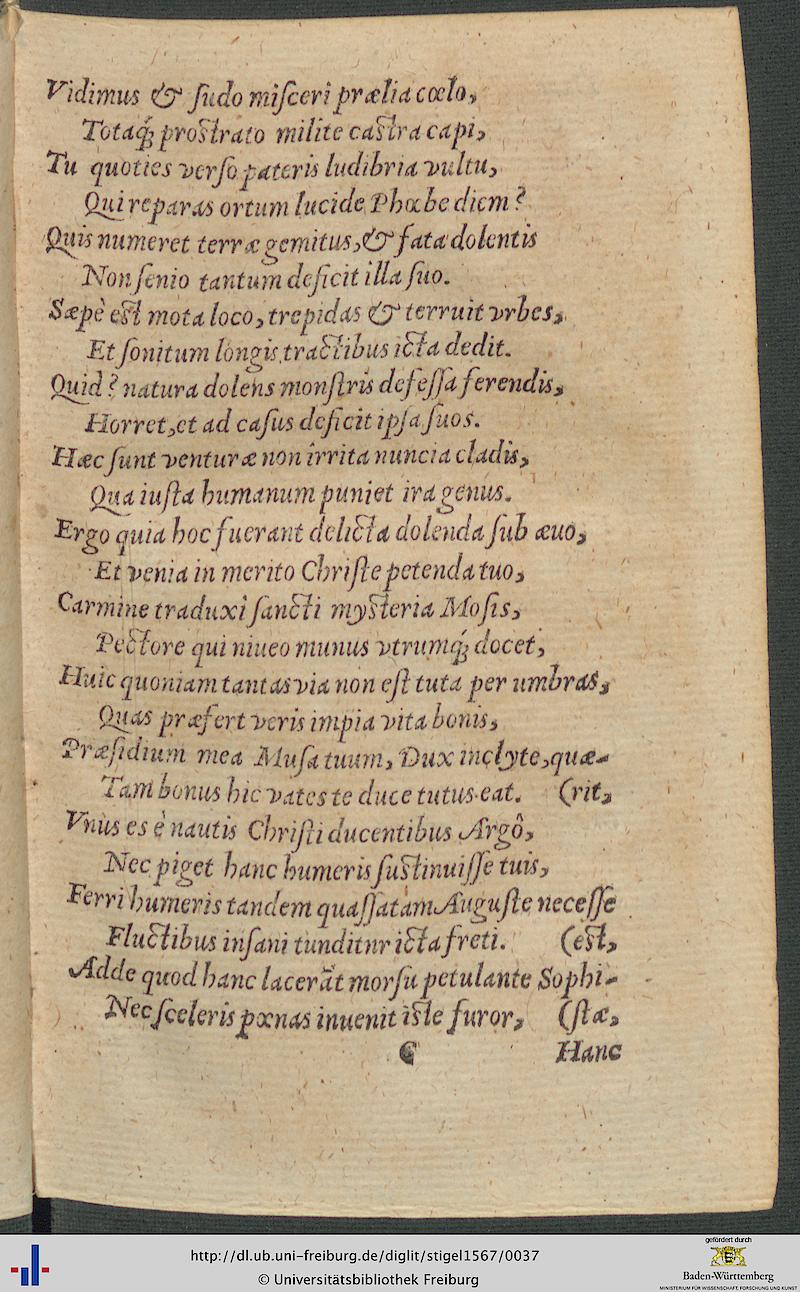 Vidimus & ſudo miſceri prælia cœlo,
Totaq́; proſtrato milite caſtra capi,
Tu quoties verſo pateris ludibria vultu,
Qui reparas ortum lucide Phœbe diem?
Quis numeret terræ gemitus, & fata dolentis
Non ſenio tantum deficit illa ſuo.
Sæpè eſt mota loco, trepidas & terruit vrbes,
Et ſonitum longis tractibus icta dedit.
Quid? natura dolens monſtris defeſſa ferendis,
Horret, et ad caſus deficit ipſa ſuos.
Hæc ſunt venturæ non irrita nuncia cladis,
Qua iuſta humanum puniet ira genus.
Ergo quia hoc fuerant delicta dolenda ſub æuo,
Et venia in merito Chriſte petenda tuo,
Carmine traduxi ſancti myſteria Moſis,
Pectore qui niueo munus vtrumq́; docet,
Huic quoniam tantas via non eſt tuta per umbras,
Quas præfert veris impia vita bonis,
Præſidium mea Muſa tuum, Dux inclyte, quæ-
Tam bonus hic vates te duce tutus eat. (rit,
Vnus es è nautis Chriſti ducentibus Argô,
Nec piget hanc humeris ſuſtinuiſſe tuis,
Ferri humeris tandem quaſſatam Auguſte neceſſe
Fluctibus inſani tunditnr icta freti. (eſt,
Adde quod hanc lacerãt morſu petulante Sophi-
Nec ſceleris pœnas inuenit iſte furor, (ſtæ,
C Hanc
http://dl.ub.uni-freiburg.de/diglit/stigel1567/0037
© Universitätsbibliothek Freiburg
gefördert durch
Baden-Württemberg
MINISTERIUM FÜR WISSENSCHAFT, FORSCHUNG UND KUNST